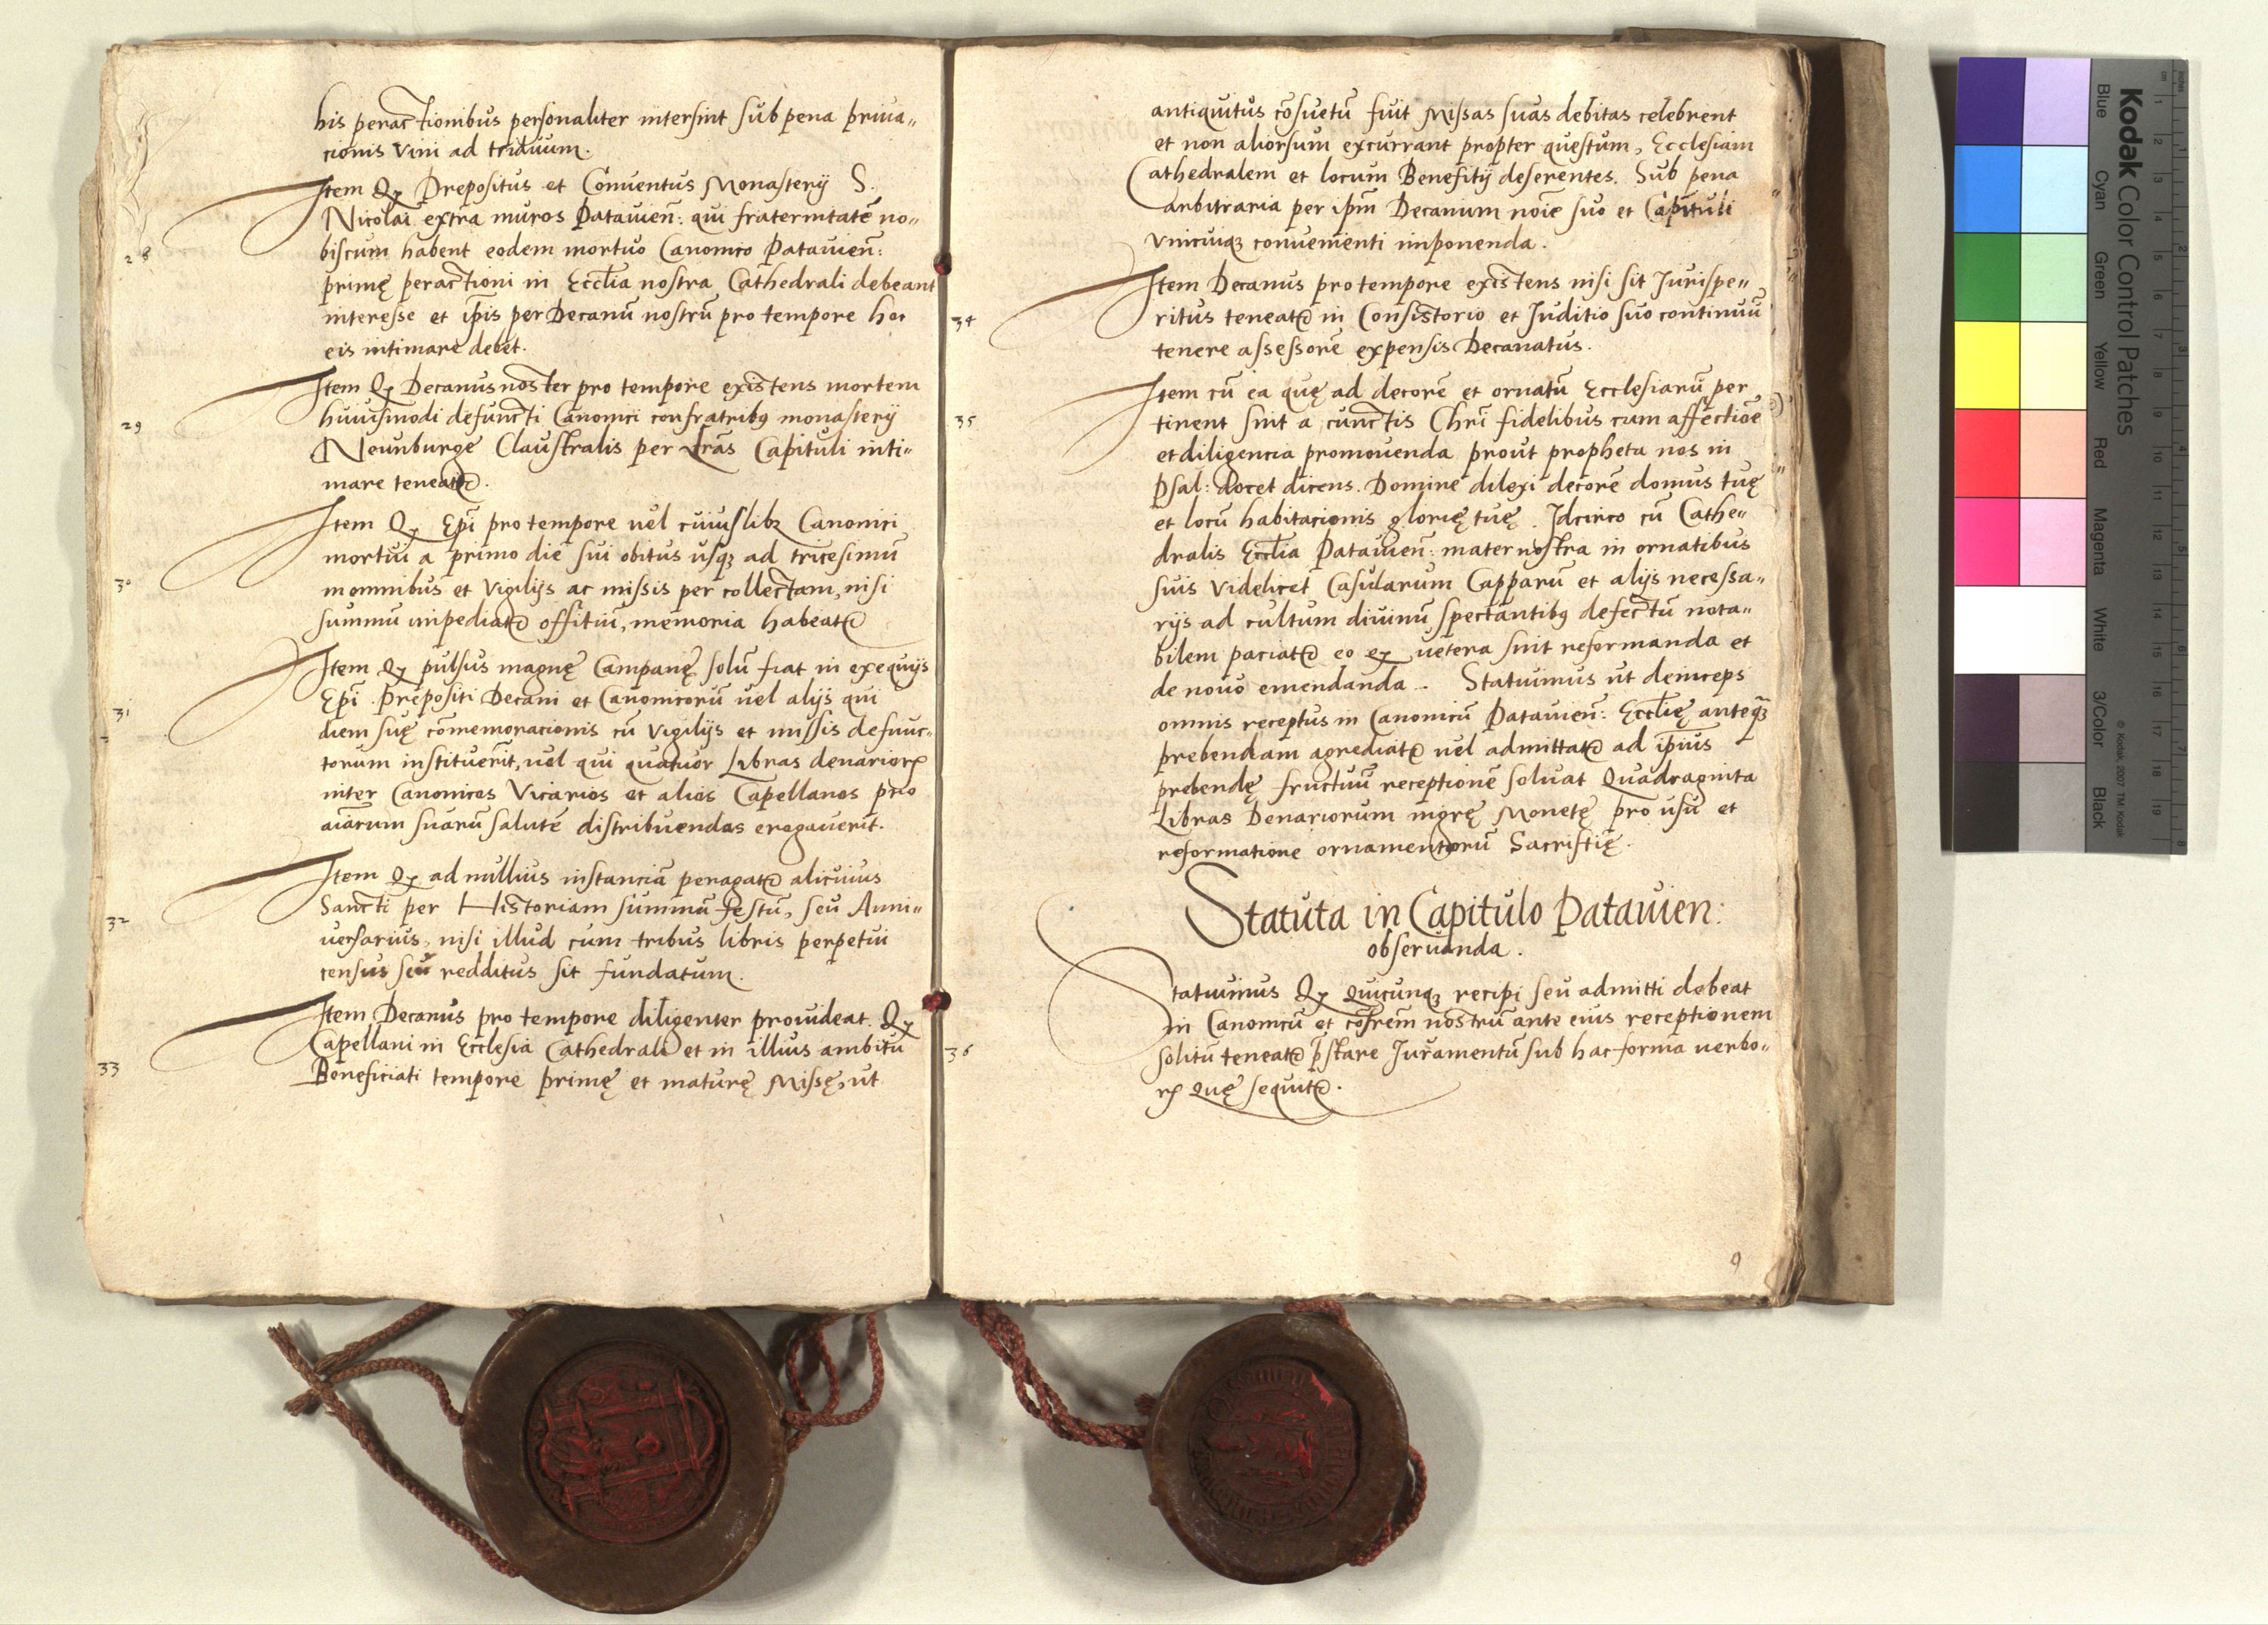 his peractionibus personaliter intersint sub pena priua„
cionis vini ad triduum.
Item Qꝫ Prepositus et Conuentus Monasterij S.
Nicolai extra muros Patauien̄: qui fraternitatē no„
biscum habent eodem mortuo Canonico Patauien̄:
28
primę peractioni in Eccl̄ia nostra Cathedrali debeant
interesse et ip̄is per Decanū nostrū pro tempore hoc
eis intimare debet.
Item Qꝫ Decanus noster pro tempore existens mortem
huiusmodi defuncti Canonici confratribꝫ monasterij
29
Neunburge Claustralis per lr̄as Capituli inti„
mare teneatr̄.
Item Qꝫ Ep̄i pro tempore uel cuiuslibꝫ Canonici
mortui a primo die sui obitus usqꝫ ad tricesimū
30
in omnibus et vigilijs ac missis per collectam, nisi
summū impediatr̄ offitiū, memoria habeatr̄
Item Qꝫ pulsus magnę Campanę solū fiat in exequijs
Ep̄i. Prepositi Decani et Canonicorū uel alijs qui
31
diem suę cōmemoracionis cū vigilijs et missis defunc„
torum instituerit, uel qui quatuor Libras denariorꝝ
inter Canonicos Vicarios et alios Capellanos pro
aīarum suarū salutē distribuendas erogauerit.
Item Qꝫ ad nullius instanciā peragatr̄ alicuius
Sancti per Historiam summū festū, seu Anni„
32
uersarius, nisi illud cum tribus libris perpetui
census seu redditus sit fundatum.
Item Decanus pro tempore diligenter prouideat. Qꝫ
Capellani in Ecclesia Cathedrali et in illius ambitu
33
Beneficiati tempore primę et maturę Missę, ut
antiquitus cōsuetū fuit Missas suas debitas celebrent
et non aliorsum excurrant propter questum, Ecclesiam
Cathedralem et locum Benefitij deserentes. Sub pena
arbitraria per ip̄m Decanum noīe suo et Capituli
vnicuiqꝫ conuenienti imponenda.
Item Decanus pro tempore existens nisi sit Jurispe„
34
ritus teneatr̄ in Consistorio et Juditio suo continuū
tenere assessorē expensis Decanatus.
Item cū ea quę ad decorē et ornatū Ecclesiarū per
35
tinent sint a cunctis Chr̄i fidelibus cum affectiōe
et diligencia promouenda prout propheta nos in
Psal: docet dicens. Domine dilexi decorē domus tuę
et locū habitacionis glorię tuę. Idcirco cū Cathe„
dralis Eccl̄ia Patauien̄: mater nostra in ornatibus
suis videlicet Casularum Capparū et alijs necessa„
rijs ad cultum diuinū spectantibꝫ defectū nota„
bilem paciatr̄ eo qꝫ uetera sint reformanda et
de nouo emendanda. Statuimus ut deinceps
omnis receptus in Canonicū Patauien̄: Eccl̄ię anteqꝫ̄
prebendam agrediatr̄ uel admittatr̄ ad ip̄ius
prebendę fructuū receptionē soluat Quadraginta
Libras Denariorum nigrę Monetę pro usu et
reformatione ornamentorū Sacristię.
Statuta in Capitulo Patauien:
obseruanda.
Statuimus Qꝫ quicunqꝫ recipi seu admitti debeat
in Canonicū et cōfrem̄ nostrū ante eius receptionem
36
solitū teneatr̄ p̄stare Juramentū sub hac forma uerbo„
rꝝ quę sequitr̄.
9
Kodak Color Control Patches
Blue Cyan Green Yellow Red Magenta White 3/Color Black
© Kodak, 2007 TM: Kodak